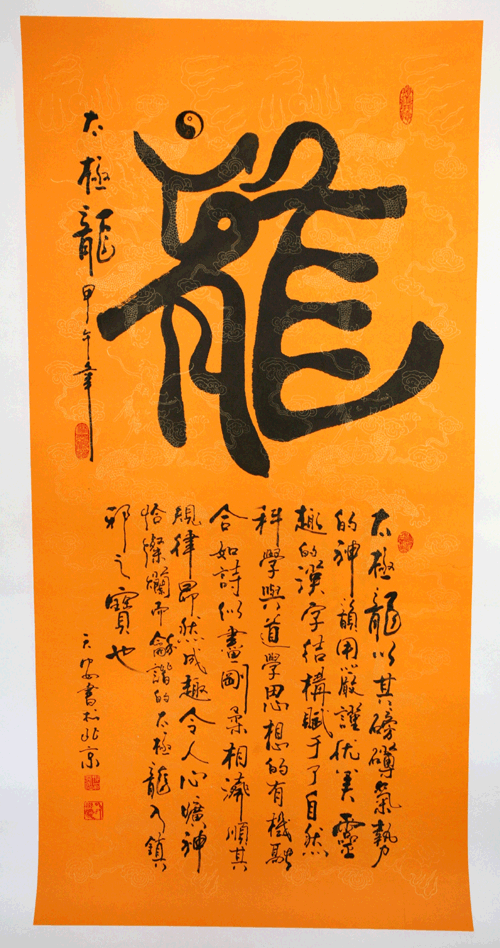 龍
太極龍
甲午年
太極龍以其磅礴氣勢
的神韻用嚴謹优美靈
趣的漢字结構賦于了自然
科學與道學思想的有機融
合如詩似畫剛柔相濟順其
規律昂然成趣令人心曠神
怡燦爛而龢諧的太極龍乃鎮
邪之寶也
書於北京